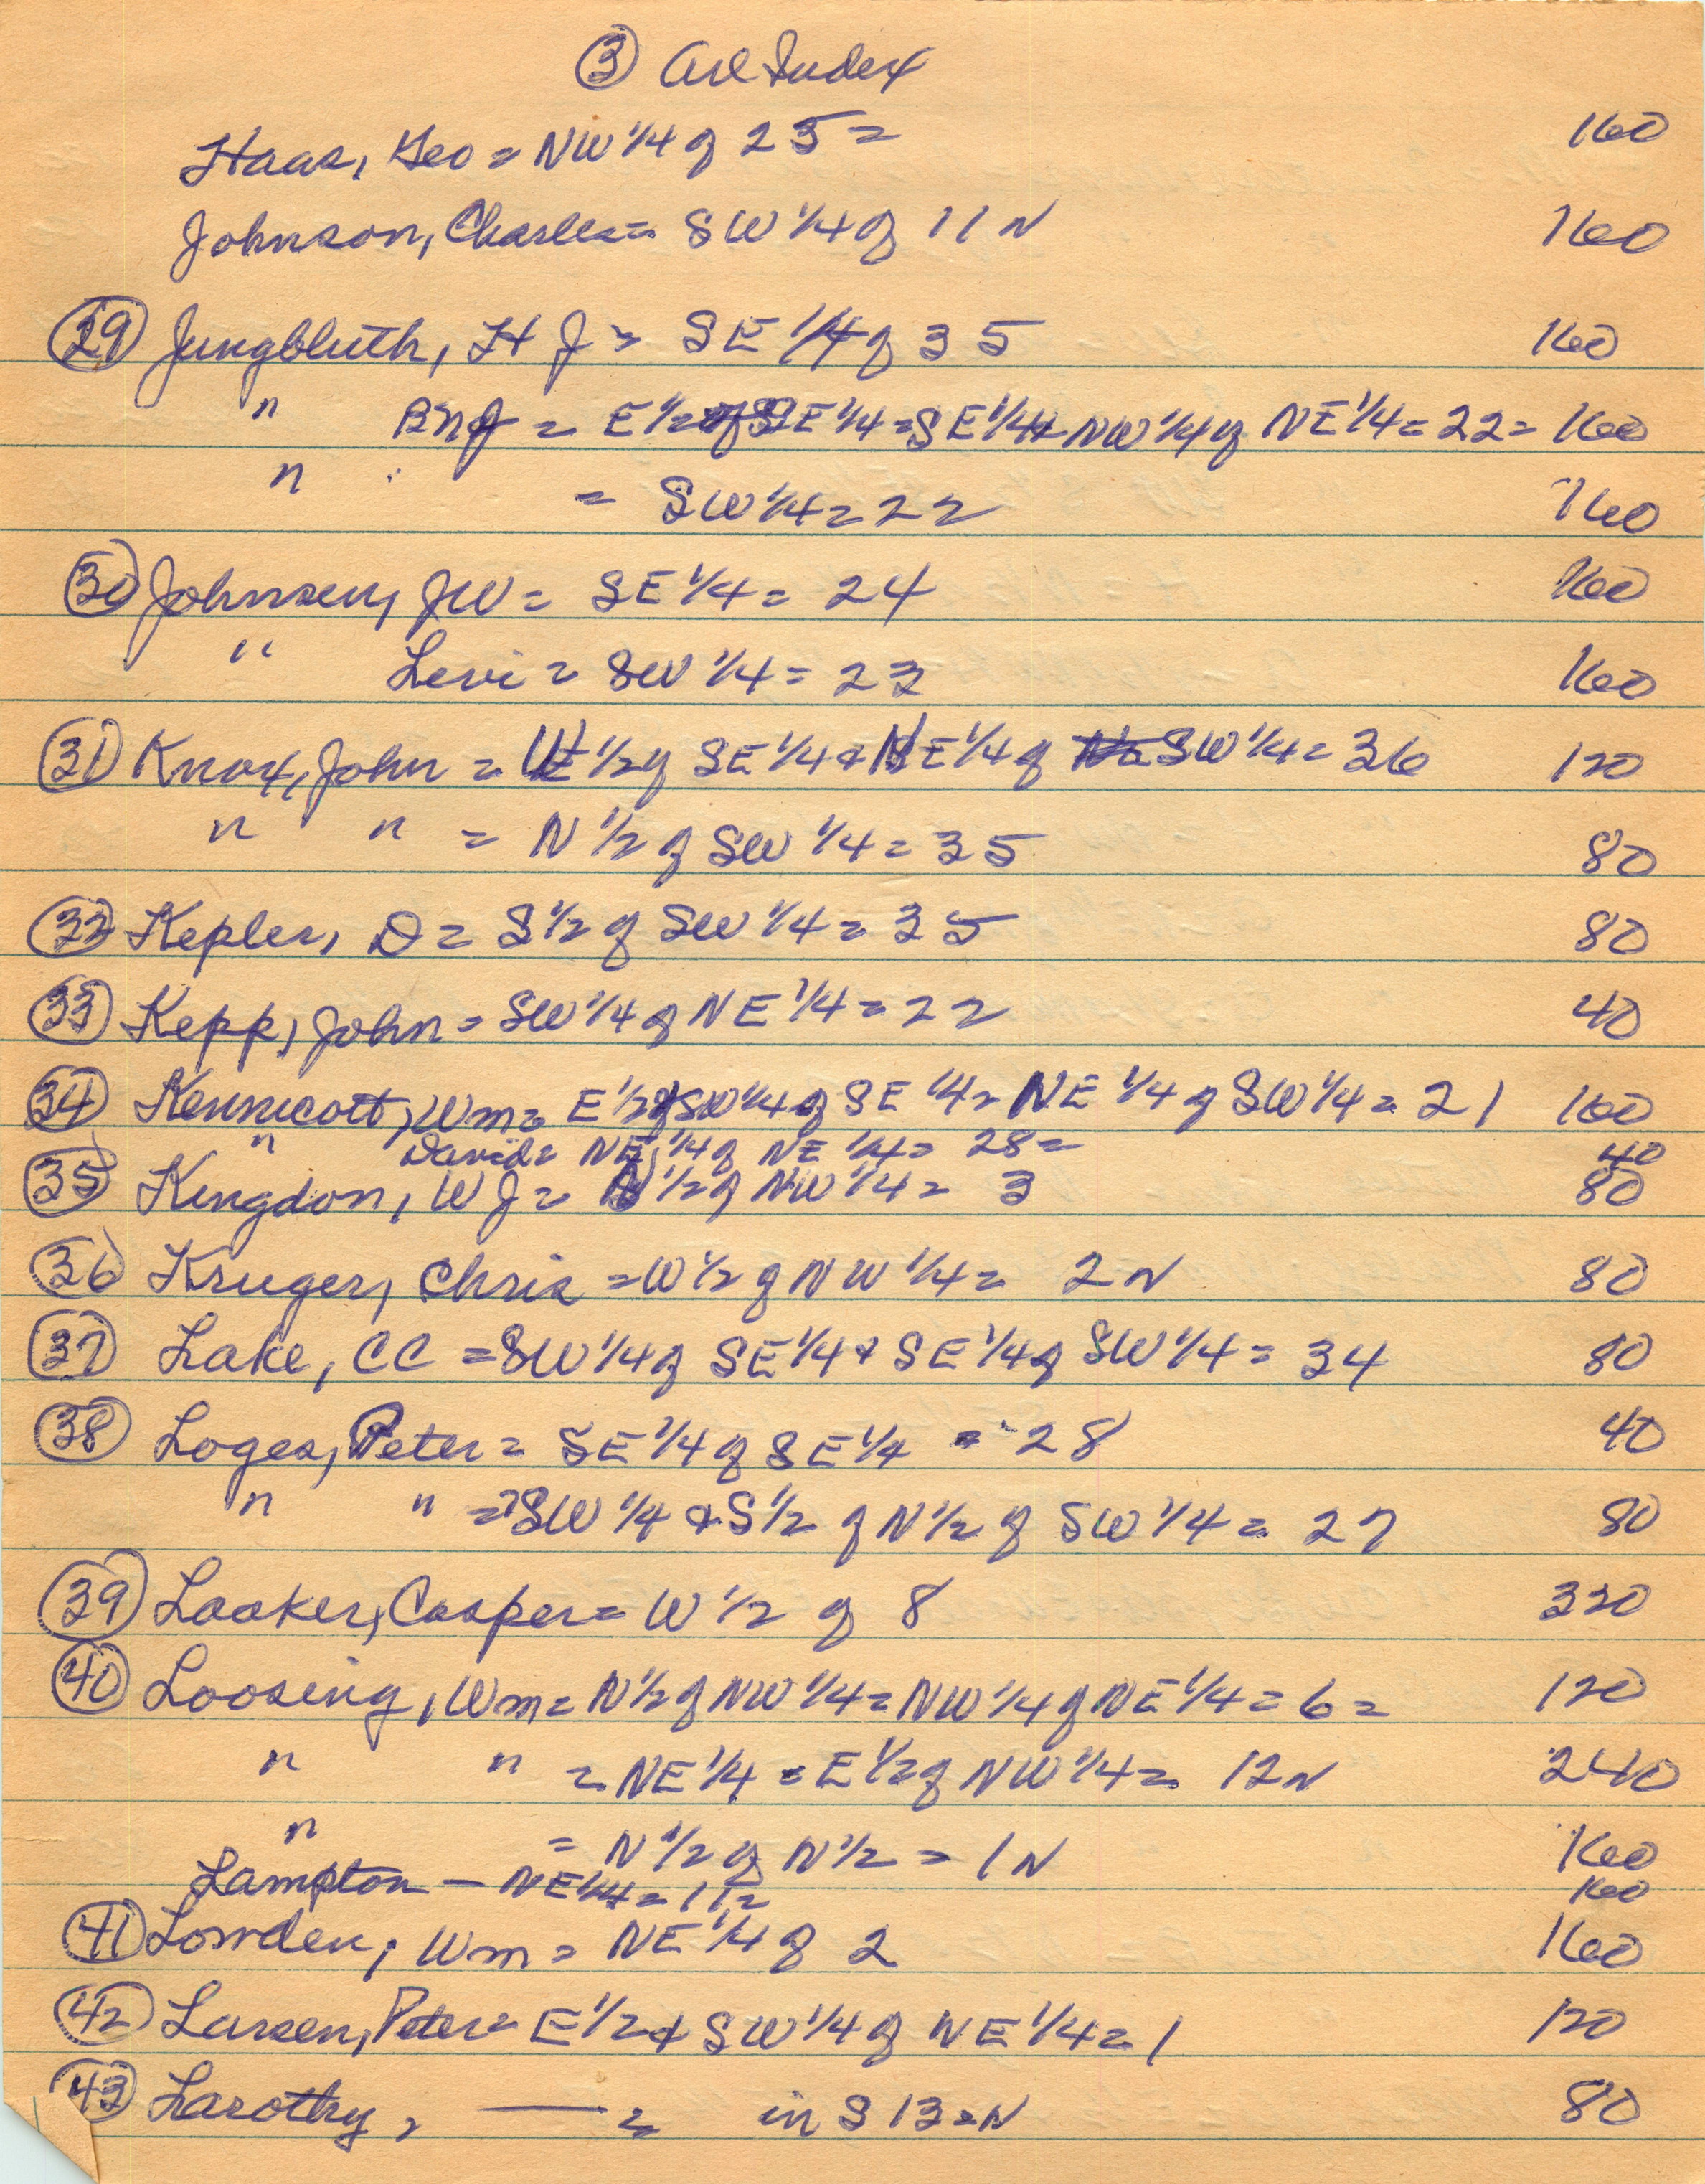 ③ Index
Haas, Geo = NW 1/4 of 25 = 160
Johnson, Charles = SW 1/4 of 11 N 160
㉙ Jungbluth, H J = SE 1/4 of 35 160
" = E 1/2 of SE 1/4 = SE 1/4 + NW 1/4 of NE 1/4 = 22 = 160
" = SW 1/4 = 22 160
㉚ Johnsen, JW = SE 1/4 = 24 160
" Levi = SW 1/4 = 23 160
㉛ Knox, John = 1/2 of SE 1/4 + NE 1/4 of SW 1/4 = 36 120
" " = N 1/2 of SW 1/4 = 35 80
㉜ Kepler, D = S 1/2 of SW 1/4 = 35 80
㉝ Kepp, John = SW 1/4 of NE 1/4 = 22 40
㉞ Kennicott, Wm = E 1/2 + SW 1/4 of SE 1/4 = NE 1/4 of SW 1/4 = 21 160
" David = NE 1/4 of NE 1/4 = 28 = 40
㉟ Kingdon, W J = 1/2 of NW 1/4 = 3 80
㊱ Kruger, Chris = W 1/2 of NW 1/4 = 2 N 80
㊲ Lake, CC = SW 1/4 of SE 1/4 + SE 1/4 of SW 1/4 = 34 80
㊳ Loges, Peter = SE 1/4 of SE 1/4 = 28 40
" " = SW 1/4 + S 1/2 of N 1/2 of SW 1/4 = 27 80
㊴ Looker, Casper = W 1/2 of 8 320
㊵ Loosing, Wm = N 1/2 of NW 1/4 = NW 1/4 of NE 1/4 = 6 = 120
" " = NE 1/4 = E 1/2 of NW 1/4 = 12 N 240
" = N 1/2 of N 1/2 = 1 N 160
Lampton — NE 1/4 = 11 = 160
㊶ Lowden, Wm = NE 1/4 of 2 160
㊷ Larsen, Peter = E 1/2 + SW 1/4 of NE 1/4 = 1 120
㊸ Larothy, — = in S 13 = N 80